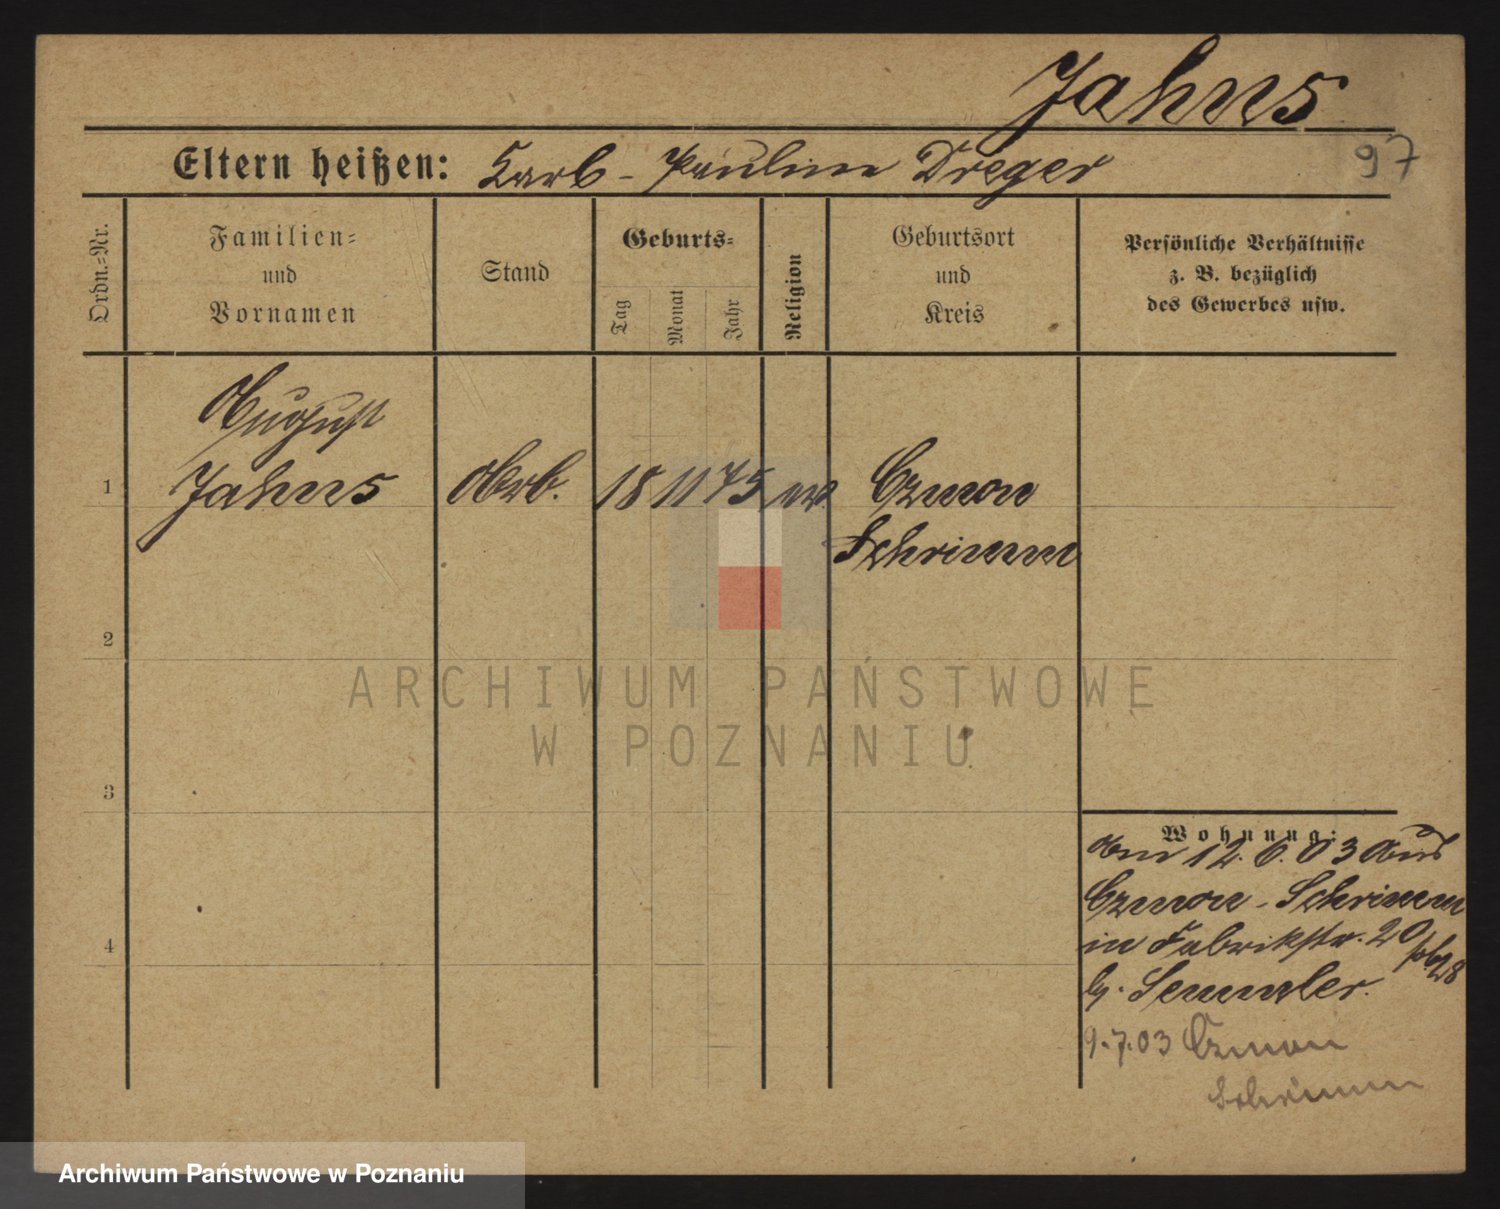 Jahns
Eltern heißen: Karl - Pauline Dreger
97
Ordn.-Nr.
Familien-
und
Vornamen
Stand
Geburts-
Tag
Monat
Jahr
Religion
Geburtsort
und
Kreis
Persönliche Verhältnisse
z. B. bezüglich
des Gewerbes usw.
August
1 Jahns Arb. 18 11 75 ev. Czmon
Schrimm
2
ARCHIWUM PAŃSTWOWE
W POZNANIU
3
Wohnung:
Am 12. 6. 03 aus
Czmon - Schrimm
4
in Fabrikstr. 20
b. Semmler.
9.7.03 Czmon
Schrimm
Archiwum Państwowe w Poznaniu